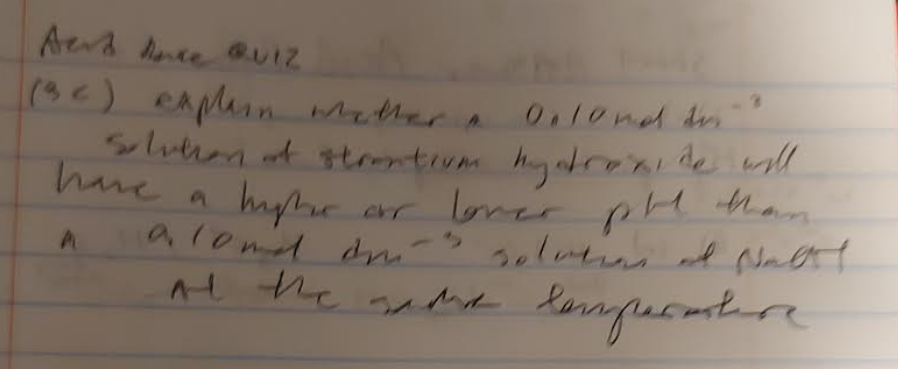 Acid Base Quiz
(3c) explain whether a 0.10 mol dm⁻³
solution of strontium hydroxide will
have a higher or lower pH than
a 0.10 mol dm⁻³ solution of NaOH
at the same temperature